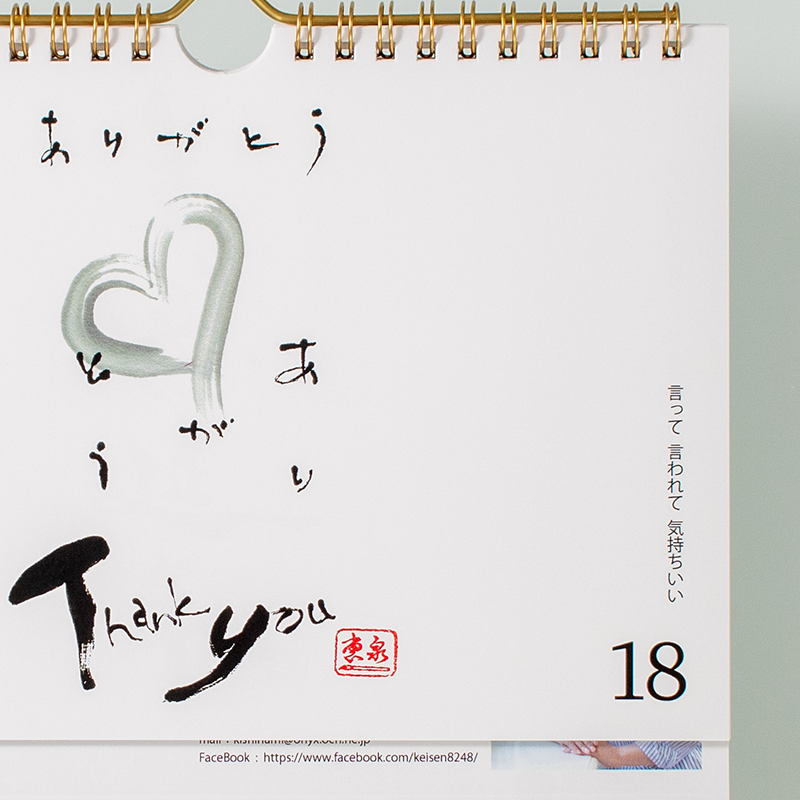 ありがとう
あり
が
とう
Thank you
恵泉
言って 言われて 気持ちいい
18
mail : kishinami@onyx.ocn.ne.jp
FaceBook : https://www.facebook.com/keisen8248/